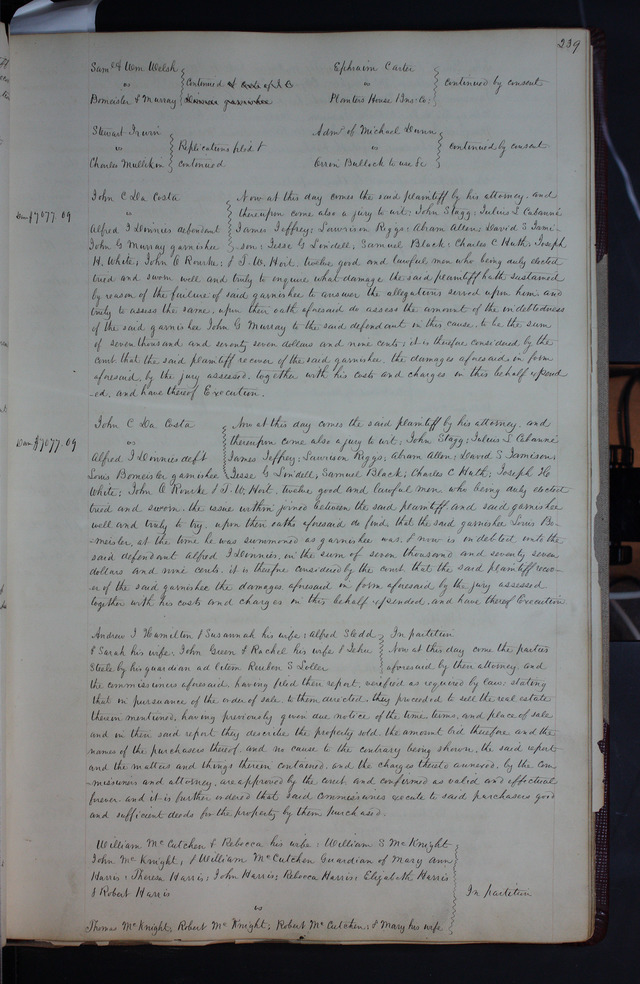 239
Saml & Wm Welsh
vs continued
Bomeister & Murray
Ephraim Carter
vs continued by consent
Planters House Ins: Co:
Stewart Irwin
vs Replications filed &
Charles Mullikin continued
Adm. of Michael Dunn
vs continued by consent
Orrin Bullock to use &c
John C Da Costa Now at this day comes the said plaintiff by his attorney, and
vs thereupon come also a jury to wit; John Stagg; Julius S Cabanné
Dam $7077.09
Alfred I Dennies defendant James Jeffrey; Lawrison Riggs; Abram Allen; David S Jami-
John G Murray garnishee son; Jesse G Lindell; Samuel Black; Charles C Huth; Joseph
H. White; John O Rourke; & T. W. Hoit, twelve good and lawful men who being duly elected
tried and sworn well and truly to enquire what damage the said plaintiff hath sustained
by reason of the failure of said garnishee to answer the allegations served upon him, and
truly to assess the same, upon their oath aforesaid do assess the amount of the indebtedness
of the said garnishee John G Murray to the said defendant in this cause, to be the sum
of seven thousand and seventy seven dollars and nine cents; it is therefore considered by the
court that the said plaintiff recover of the said garnishee, the damages aforesaid in form
aforesaid, by the jury assessed, together with his costs and charges in this behalf expend
ed, and have thereof Execution.
John C Da Costa Now at this day comes the said plaintiff by his attorney, and
vs thereupon come also a jury to wit; John Stagg; Julius S Cabanné
Dam $7077.09
Alfred I Dennies deft James Jeffrey; Lawrison Riggs; Abram Allen; David S Jamieson;
Louis Bomeister garnishee Jesse G Lindell; Samuel Black; Charles C Huth; Joseph H.
White; John O Rourke & T. W. Hoit, twelve good and lawful men who being duly elected
tried and sworn, the issue within joined between the said plaintiff and said garnishee
well and truly to try, upon their oaths aforesaid do find, that the said garnishee Louis Bo-
-meister, at the time he was summoned as garnishee was, & now is indebted unto the
said defendant Alfred I Dennies, in the sum of seven thousand and seventy seven
dollars and nine cents, it is therefore considered by the court that the said plaintiff recov-
er of the said garnishee the damages aforesaid in form aforesaid by the jury assessed
together with his costs and charges in this behalf expended, and have thereof Execution
Andrew I Hamilton & Susannah his wife; Alfred Stedd In partition
& Sarah his wife, John Green & Rachel his wife & John Now at this day come the parties
Steele by his guardian ad litem Reuben S Loller aforesaid by their attorney, and
the commissioners aforesaid, having filed their report, verified as required by law; stating
that in pursuance of the order of sale to them directed, they proceeded to sell the real estate
therein mentioned, having previously given due notice of the time terms, and place of sale
and in their said report they describe the property sold, the amount bid therefore and the
names of the purchasers thereof, and no cause to the contrary being shown, the said report
and the matters and things therein contained, and the charges thereto annexed, by the com-
-missioners and attorney, are approved by the court, and confirmed as valid and effectual
forever, and it is further ordered that said commissioners execute to said purchasers good
and sufficient deeds for the property by them purchased.
William McCutchen & Rebecca his wife; William S McKnight
John McKnight, & William McCutchen Guardian of Mary Ann
Harris; Theresa Harris; John Harris; Rebecca Harris; Elizabeth Harris
& Robert Harris In partition
vs
Thomas McKnight, Robert McKnight; Robert McCutchen; & Mary his wife